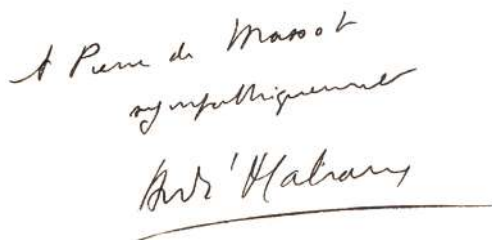 A Pierre de Massot
sympathiquement
André Malraux